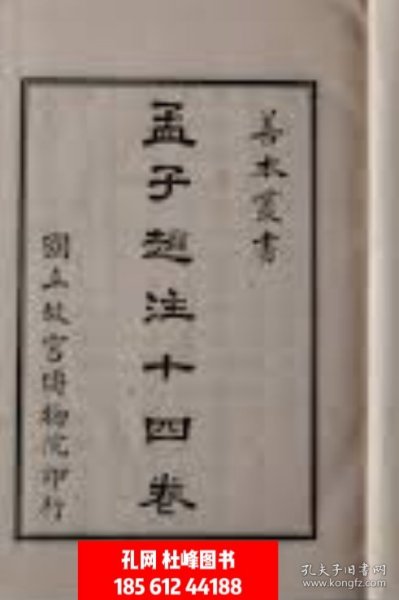 善本叢書
孟子趙注十四卷
國立故宮博物院印行
孔网 杜峰图书
185 612 44188
孔夫子旧书网
www.kongfz.com